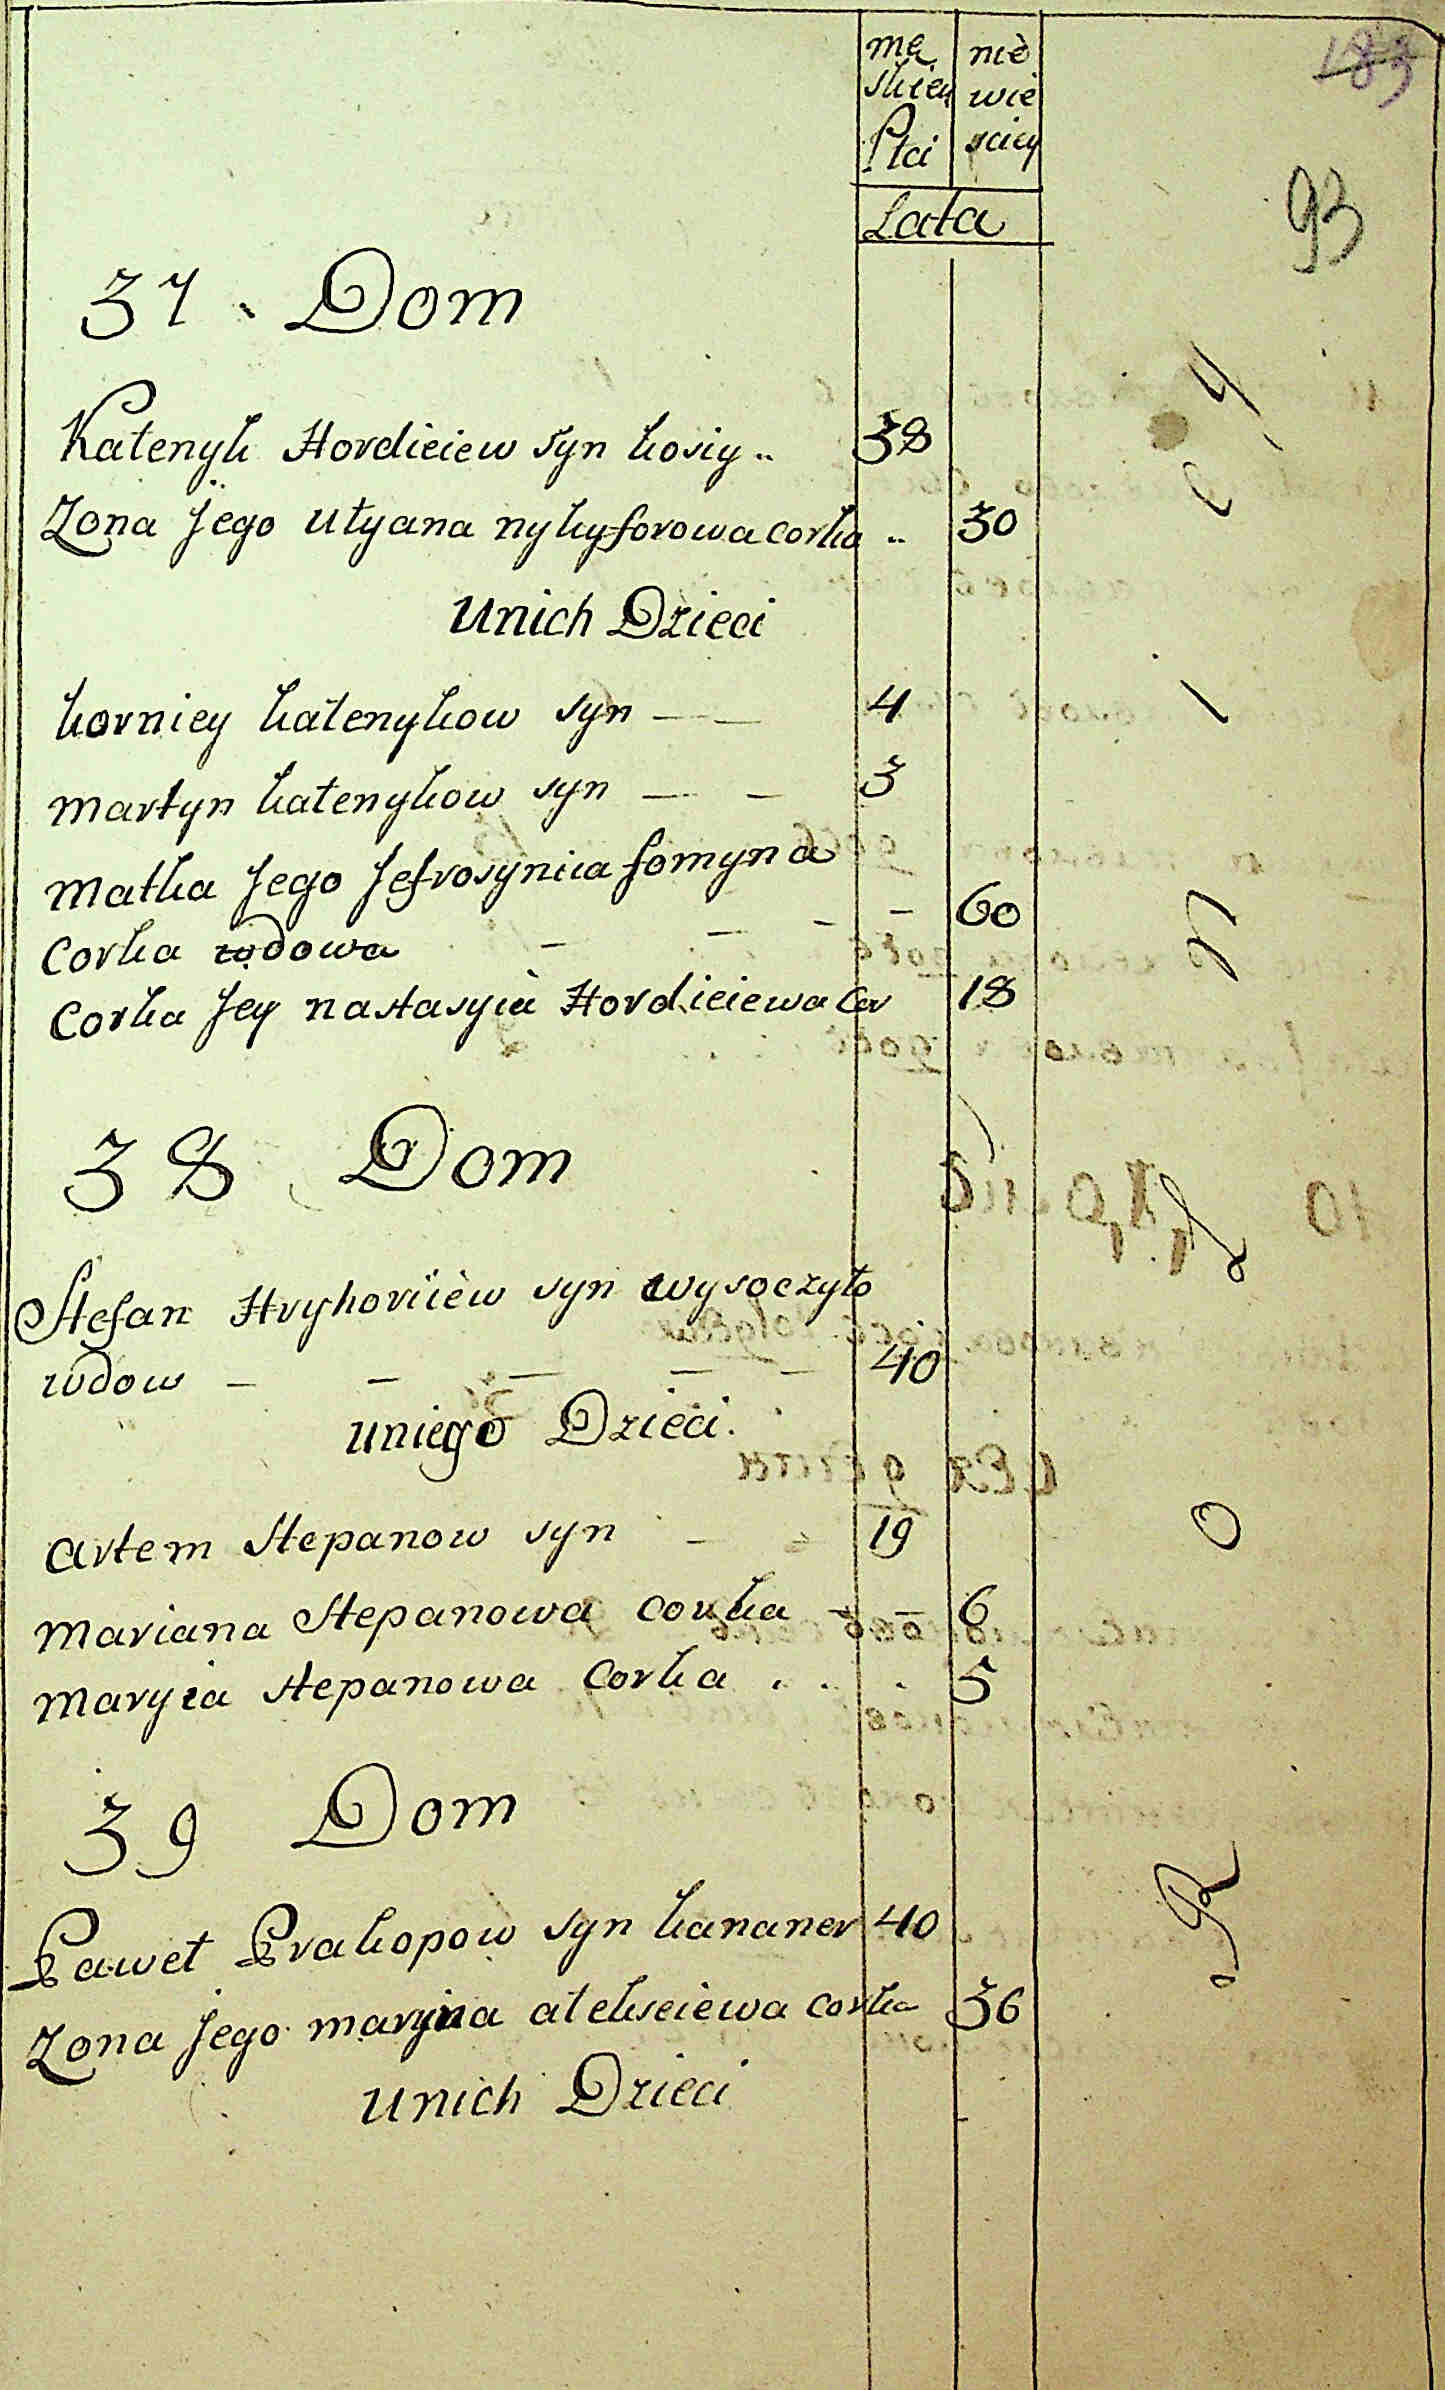 183
93
mę nie
skiey wie
Płci sciey
Lata
37 Dom
Katenyk Hordieiew syn kosiy .. 38
Zona Jego ulyana nykyforowa corka .. 30
unich Dzieci
korniey katenykow syn — — 4
martyn katenykow syn — — 3
matka Jego Jefrosyniia fomyna
corka wdowa — — — — 60
Corka Jey nastasyia Hordieiewa Cor 18
38 Dom
Stefan Hryhoriiew syn wysoczyło
wdow — — — — — 40
uniego Dzieci.
artem Stepanow syn — — 19
mariana Stepanowa corka — — 6
maryia stepanowa Corka . . . 5
39 Dom
Paweł Prakopow syn kananer 40
Zona Jego maryna atekseiewa corka 36
unich Dzieci